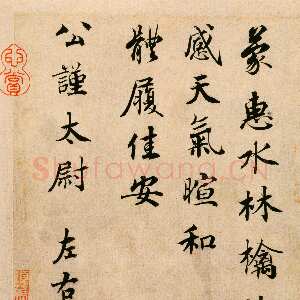 蒙惠水林檎
感天氣暄和
體履佳安
公謹太尉 左右